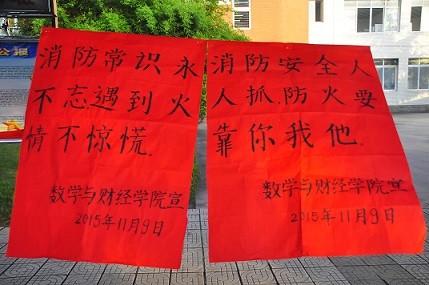 消防常识永
不忘遇到火
情不惊慌.
数学与财经学院宣
2015年11月9日
消防安全人
人抓.防火要
靠你我他.
数学与财经学院宣
2015年11月9日